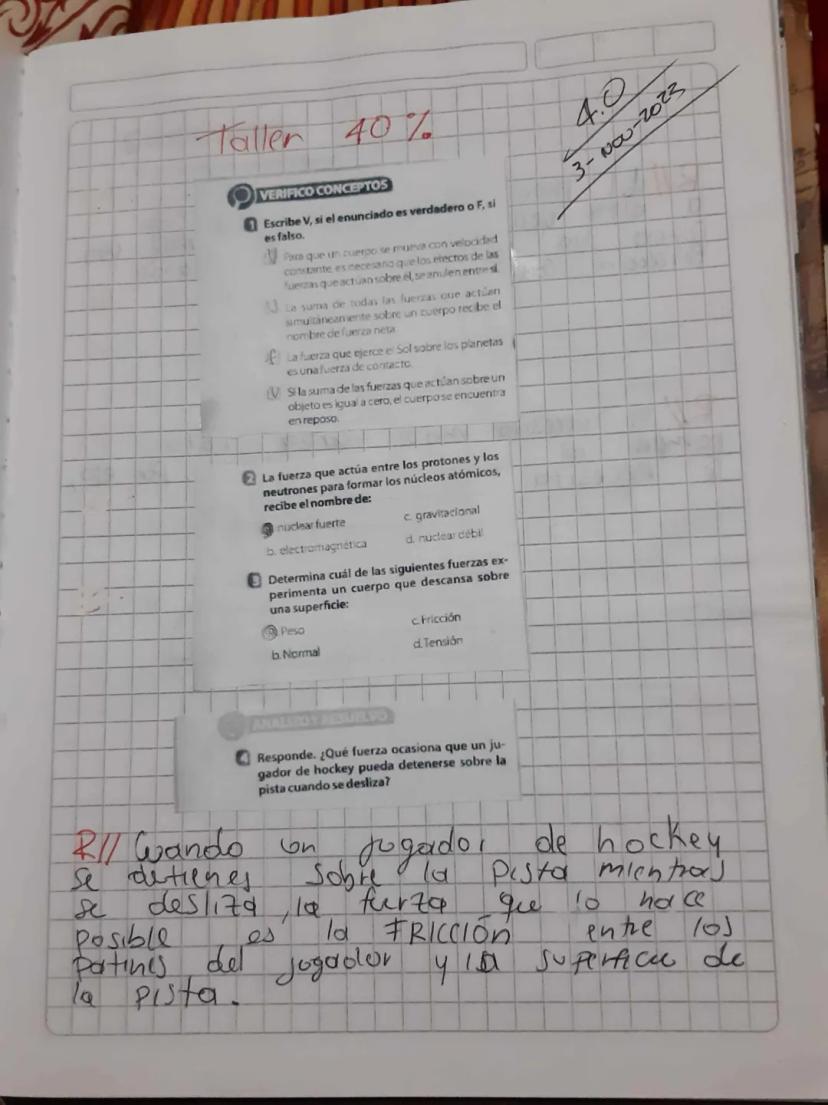 Taller 40%
4.0
3-NOV-2023
VERIFICO CONCEPTOS
1 Escribe V, si el enunciado es verdadero o F, si
es falso.
V Para que un cuerpo se mueva con velocidad
constante, es necesario que los efectos de las
fuerzas que actúan sobre él, se anulen entre sí.
La suma de todas las fuerzas que actúan
simultáneamente sobre un cuerpo recibe el
nombre de fuerza neta.
F La fuerza que ejerce el Sol sobre los planetas
es una fuerza de contacto.
V Si la suma de las fuerzas que actúan sobre un
objeto es igual a cero, el cuerpo se encuentra
en reposo.
2 La fuerza que actúa entre los protones y los
neutrones para formar los núcleos atómicos,
recibe el nombre de:
nuclear fuerte c. gravitacional
b. electromagnética d. nuclear débil
3 Determina cuál de las siguientes fuerzas ex-
perimenta un cuerpo que descansa sobre
una superficie:
Peso c. Fricción
b. Normal d. Tensión
ANALIZO Y RESUELVO
4 Responde. ¿Qué fuerza ocasiona que un ju-
gador de hockey pueda detenerse sobre la
pista cuando se desliza?
R// Cuando un jugador de hockey
se detienes sobre la pista mientras
se desliza, la fuerza que lo hace
posible es la FRICCIÓN entre los
patines del jugador y la superficie de
la pista.